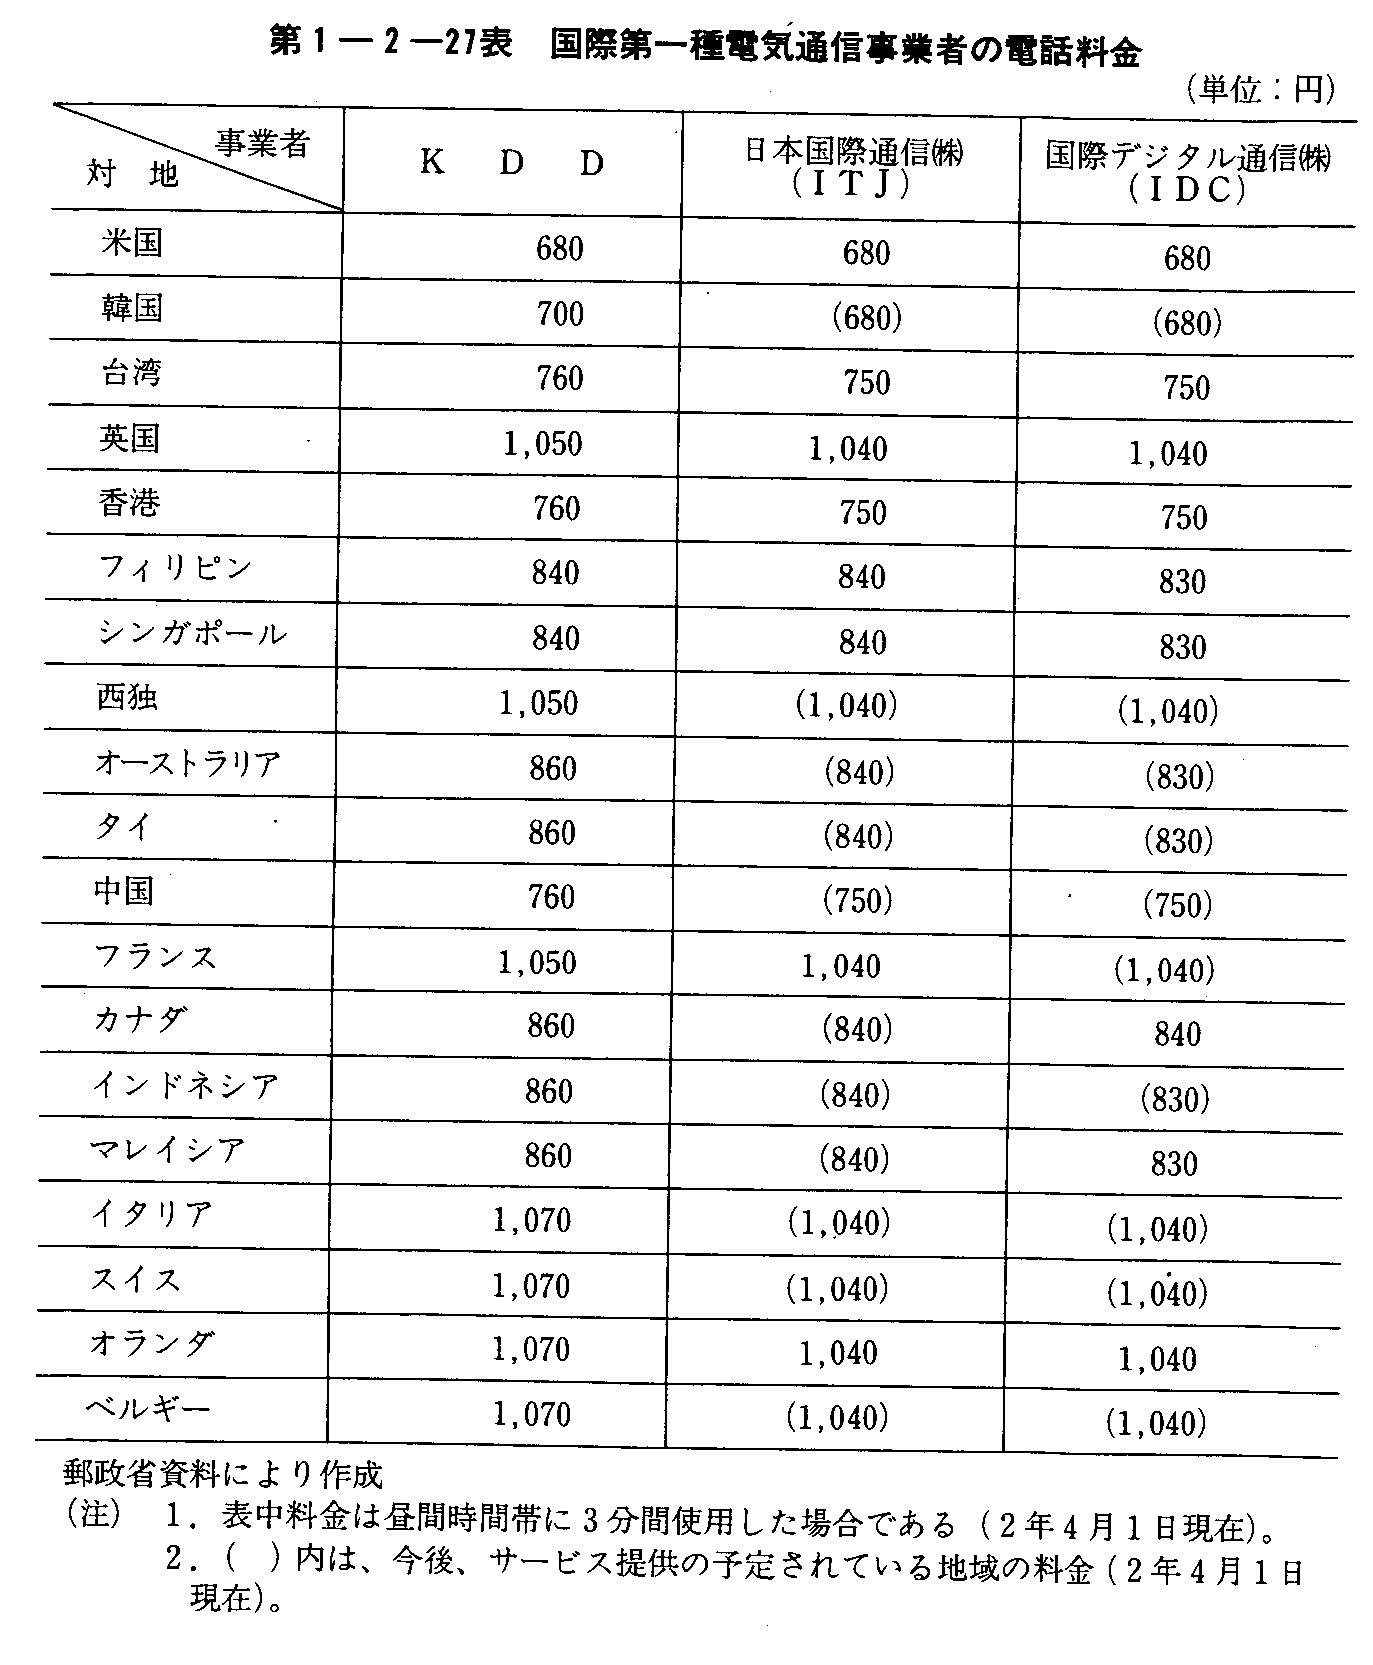 第1－2－27表　国際第一種電気通信事業者の電話料金
（単位：円）
事業者
対　地
K　D　D
日本国際通信㈱
（ＩＴＪ）
国際デジタル通信㈱
（ＩＤＣ）
米国　680　680　680
韓国　700　(680)　(680)
台湾　760　750　750
英国　1,050　1,040　1,040
香港　760　750　750
フィリピン　840　840　830
シンガポール　840　840　830
西独　1,050　(1,040)　(1,040)
オーストラリア　860　(840)　(830)
タイ　860　(840)　(830)
中国　760　(750)　(750)
フランス　1,050　1,040　(1,040)
カナダ　860　(840)　840
インドネシア　860　(840)　(830)
マレイシア　860　(840)　830
イタリア　1,070　(1,040)　(1,040)
スイス　1,070　(1,040)　(1,040)
オランダ　1,070　1,040　1,040
ベルギー　1,070　(1,040)　(1,040)
郵政省資料により作成
（注）　1．表中料金は昼間時間帯に3分間使用した場合である（2年4月1日現在）。
2．（　）内は、今後、サービス提供の予定されている地域の料金（2年4月1日
現在）。